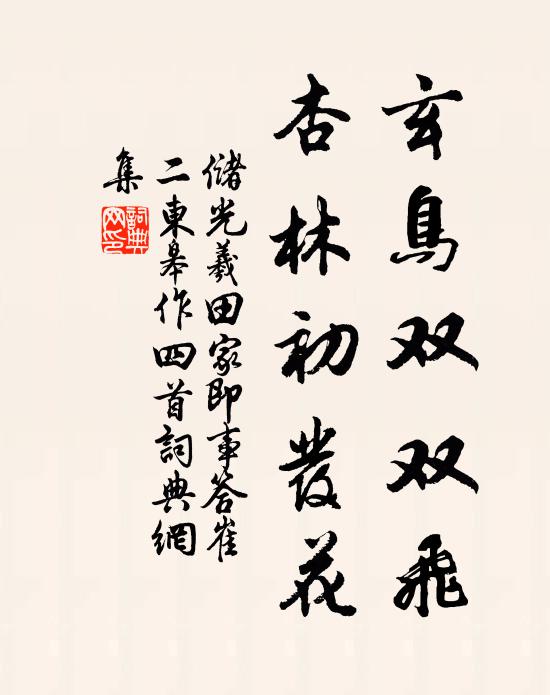 玄鳥双双飛
杏林初發花
儲光羲田家即事答崔
二東皋作四首詞典網
集
詞典
网印